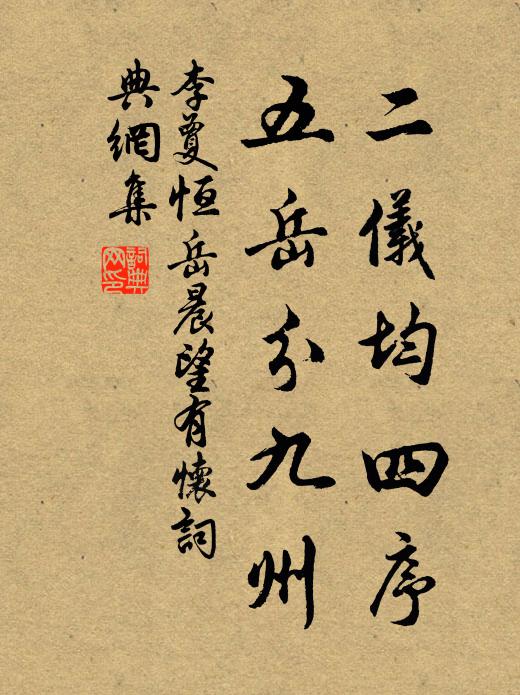 二儀均四序
五岳分九州
李夐恒岳晨望有懷詞
典網集
詞典
网印